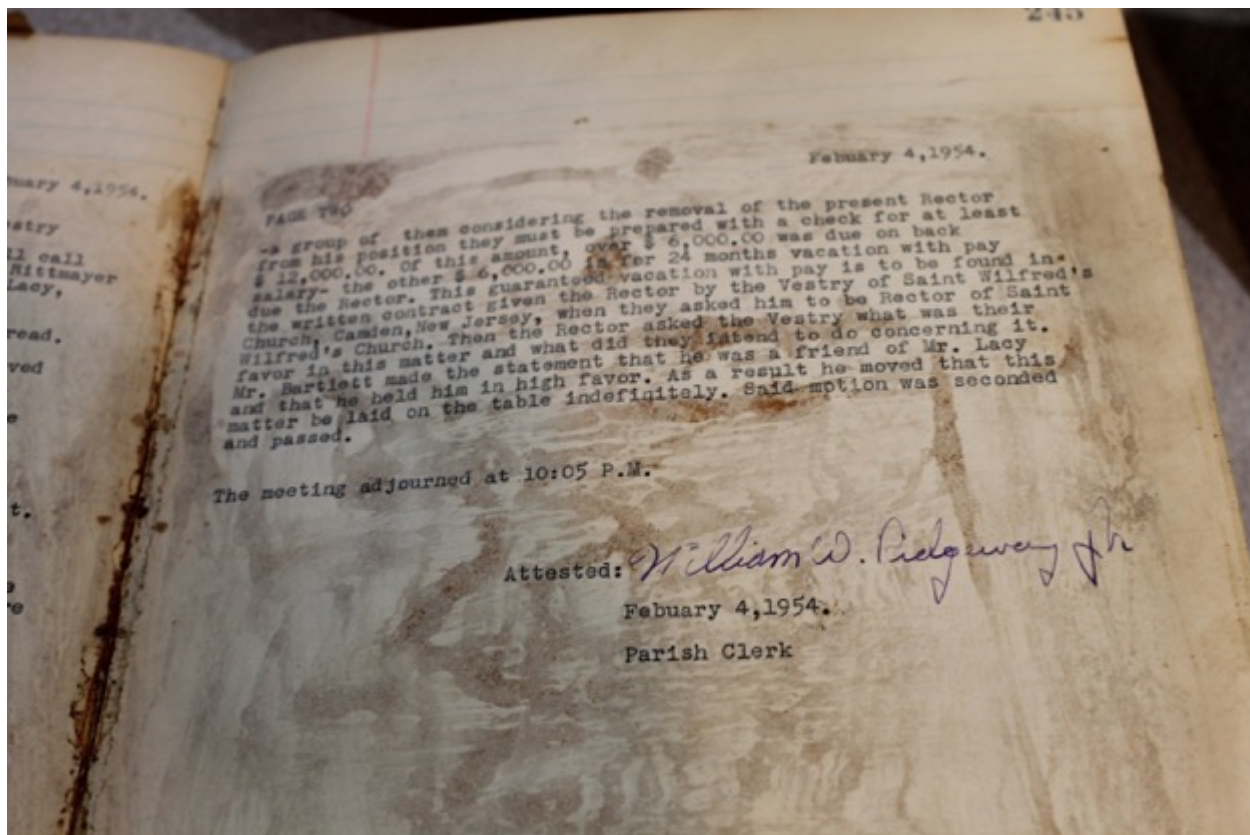 245
uary 4,1954.
stry
ll call
Rittmayer
Lacy,
read.
ved
e
t.
re
Febuary 4,1954.
PAGE TWO
-a group of them considering the removal of the present Rector
from his position they must be prepared with a check for at least
$ 12,000.00. Of this amount, over $ 6,000.00 was due on back
salary- the other $ 6,000.00 is for 24 months vacation with pay
due the Rector. This guaranteed vacation with pay is to be found in
the written contract given the Rector by the Vestry of Saint Wilfred's
Church, Camden,New Jersey, when they asked him to be Rector of Saint
Wilfred's Church. Then the Rector asked the Vestry what was their
favor in this matter and what did they intend to do concerning it.
Mr. Bartlett made the statement that he was a friend of Mr. Lacy
and that he held him in high favor. As a result he moved that this
matter be laid on the table indefinitely. Said motion was seconded
and passed.
The meeting adjourned at 10:05 P.M.
Attested: William W. Ridgeway Jr
Febuary 4,1954.
Parish Clerk